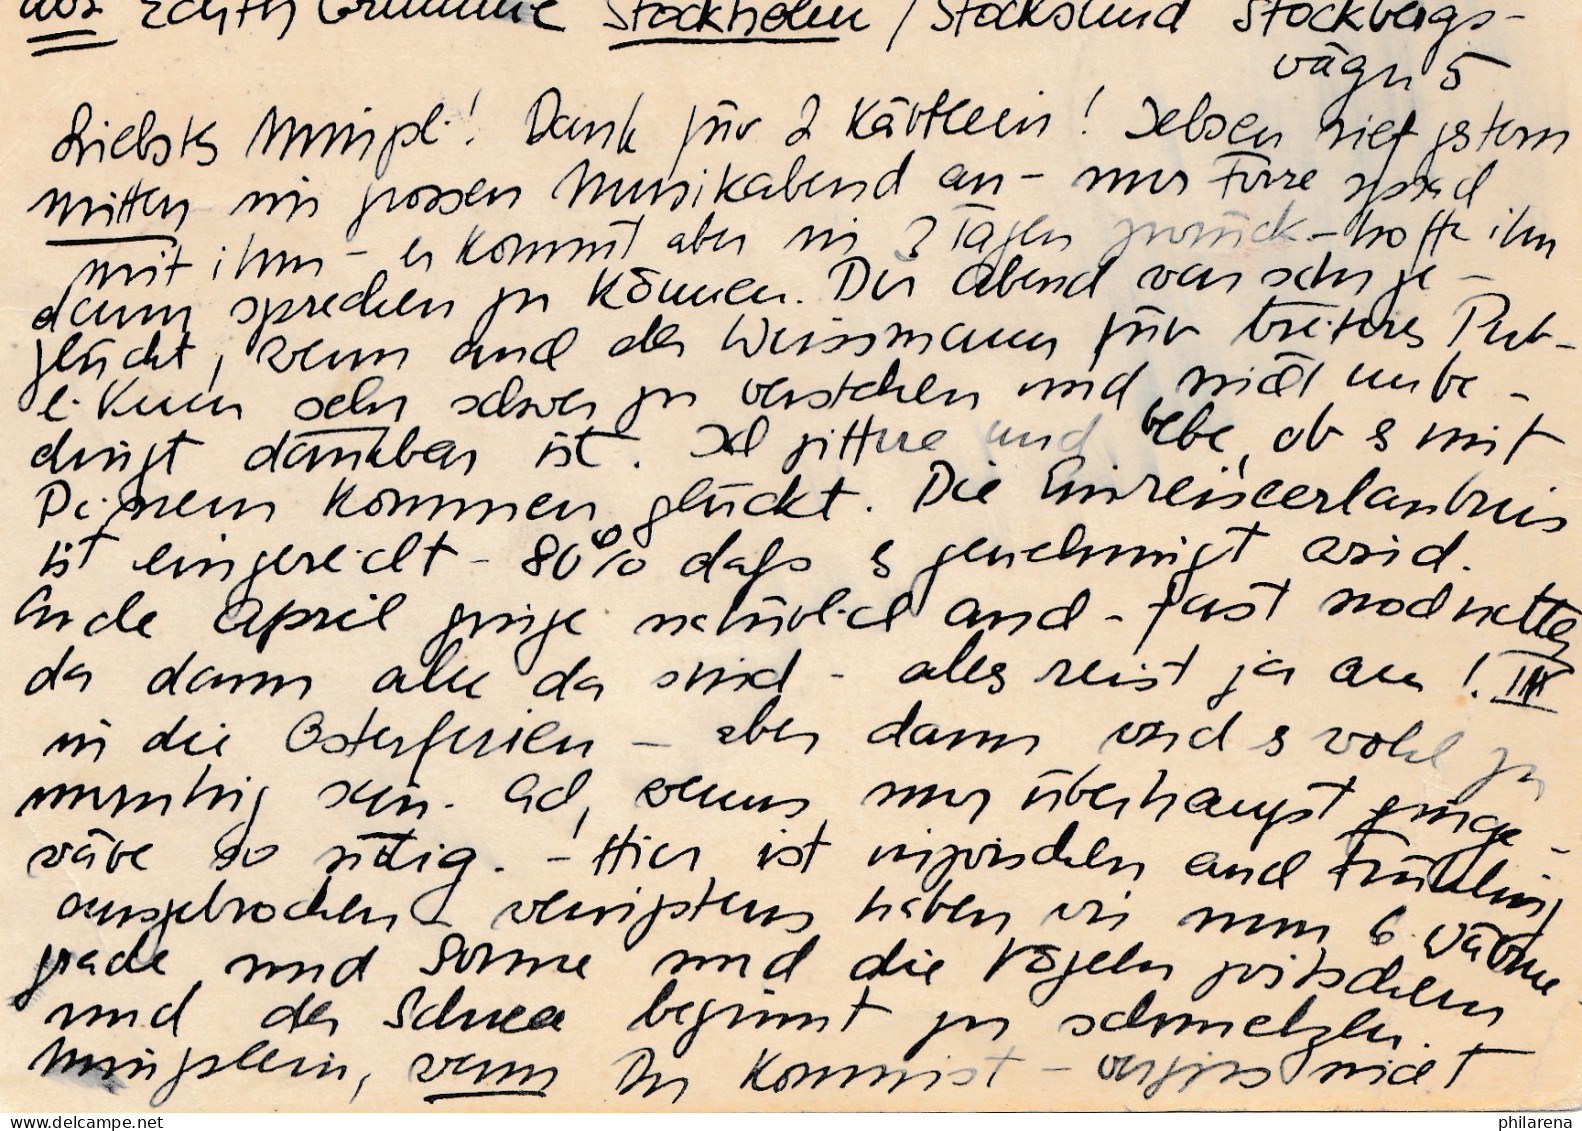 Edith Grumme Stockholm / Stocksund Stockbergs-
vägn 5
Liebstes Mungpl.! Dank für 2 Kärtlein! Jebsen rief gstern
mitten in grossen Musikabend an - nur Torre sprach
mit ihm - er kommt aber in 3 Tagen zurück - hoffe ihn
dann sprechen zu können. Der Abend war sehr ge-
glückt, wenn auch der Weissmann für breiteres Pub-
likum sehr schwer zu verstehen und nicht unbe-
dingt dankbar ist. Ich zittere und bebe, ob es mit
Deinem Kommen glückt. Die Einreiseerlaubnis
ist eingereicht - 80% dass es genehmigt wird.
Ende April ginge natürlich auch - fast noch netter
da dann alle da sind - alles reist ja an !
in die Osterferien - aber dann wird es wohl zu
unruhig sein. Ach, wenns nur überhaupt ginge -
wäre so nötig. - Hier ist inzwischen auch Frühling
ausgebrochen - wenigstens haben wir nun 6 Wärme-
grade und Sonne und die Vögeln zwitschern
und der Schnee beginnt zu schmelzen.
Mungplein, wenn Du kommst - vergiss nicht
philarena.delcampe.net
philarena